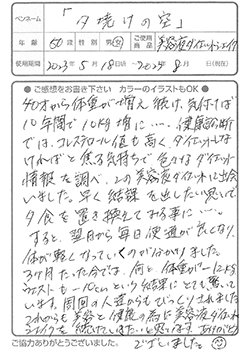 ペンネーム 「夕焼けの空」
年齢 60代 性別 男・女 ご使用商品 美容液ダイエットシェイク
使用期間 2023年5月18日~2024年8月 日(現在)
●ご感想をお書き下さい カラーのイラストもOK●
40才から体重が増え続け、気付けば
10年間で10kg増に…。健康診断
では、コレステロール値も高く、ダイエットしな
ければと焦る気持ちで色々なダイエット
情報を調べ、この美容液ダイエットに出会
いました。早く結果を出したい思いで
夕食を置き換えてみる事に…。
すると、翌月から毎日便通が良くなり、
体が軽くなっていくのが分かりました。
3ヶ月たった今では、何と体重が-12kg
ウエストも-10cmという結果にとても驚いて
います。周囲の人達からもびっくりされました。
これからも美容と健康の為に美容液ダイエット
シェイクを続けていきたいと思います。ありがとう
ございました。
ご協力ありがとうございました。